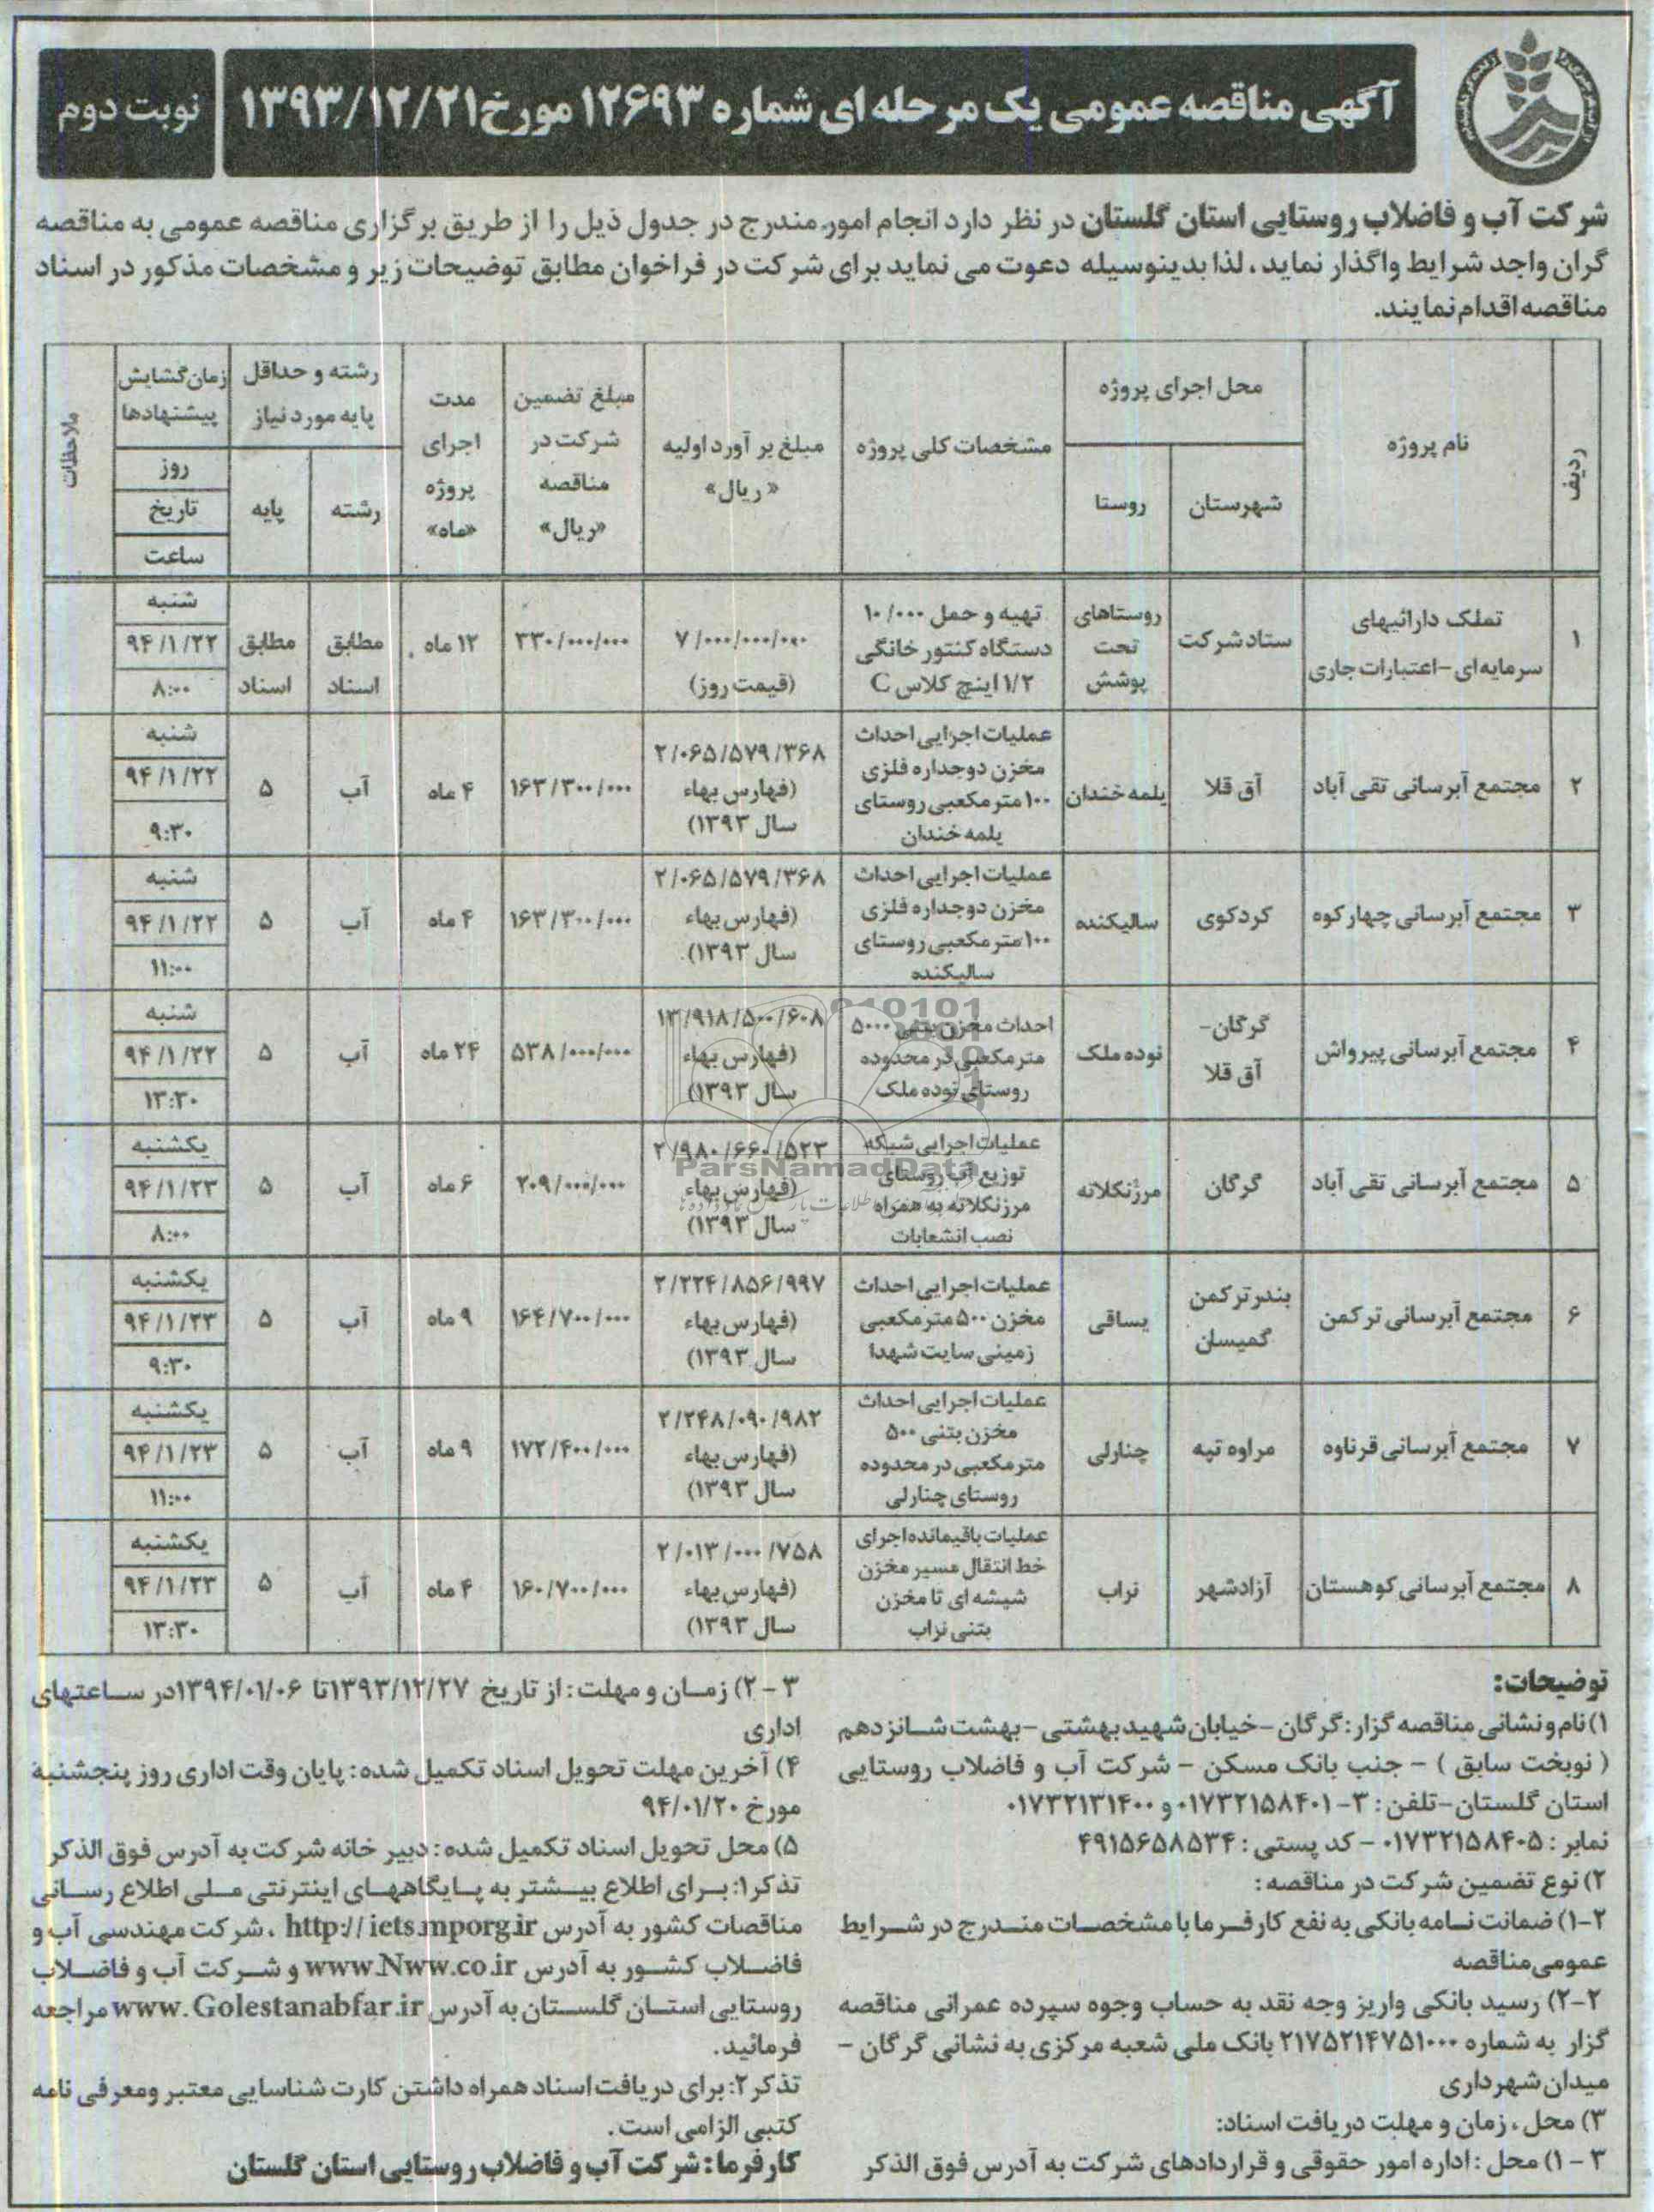 آگهی مناقصه عمومی یک مرحله ای شماره ۱۲۶۹۳ مورخ ۱۳۹۳/۱۲/۲۱
نوبت دوم
شرکت آب و فاضلاب روستایی استان گلستان در نظر دارد انجام امور مندرج در جدول ذیل را از طریق برگزاری مناقصه عمومی به مناقصه
گران واجد شرایط واگذار نماید، لذا بدینوسیله دعوت می نماید برای شرکت در فراخوان مطابق توضیحات زیر و مشخصات مذکور در اسناد
مناقصه اقدام نمایند.
ردیف
نام پروژه
محل اجرای پروژه
شهرستان
روستا
مشخصات کلی پروژه
مبلغ بر آورد اولیه
«ریال»
مبلغ تضمین
شرکت در
مناقصه
«ریال»
مدت
اجرای
پروژه
«ماه»
رشته و حداقل
پایه مورد نیاز
رشته
پایه
زمان گشایش
پیشنهادها
روز
تاریخ
ساعت
ملاحظات
۱
تملک دارائیهای
سرمایه ای - اعتبارات جاری
ستاد شرکت
روستاهای
تحت
پوشش
تهیه و حمل ۱۰/۰۰۰
دستگاه کنتور خانگی
۱/۲ اینچ کلاس C
۷/۰۰۰/۰۰۰/۰۰۰
(قیمت روز)
۳۳۰/۰۰۰/۰۰۰
۱۲ ماه
مطابق
اسناد
مطابق
اسناد
شنبه
۹۴/۱/۲۲
۸:۰۰
۲
مجتمع آبرسانی تقی آباد
آق قلا
یلمه خندان
عملیات اجرایی احداث
مخزن دوجداره فلزی
۱۰۰ متر مکعبی روستای
یلمه خندان
۲/۰۶۵/۵۷۹/۳۶۸
(فهارس بهاء
سال ۱۳۹۳)
۱۶۳/۳۰۰/۰۰۰
۴ ماه
آب
۵
شنبه
۹۴/۱/۲۲
۹:۳۰
۳
مجتمع آبرسانی چهار کوه
کردکوی
سالیکنده
عملیات اجرایی احداث
مخزن دوجداره فلزی
۱۰۰ متر مکعبی روستای
سالیکنده
۲/۰۶۵/۵۷۹/۳۶۸
(فهارس بهاء
سال ۱۳۹۳)
۱۶۳/۳۰۰/۰۰۰
۴ ماه
آب
۵
شنبه
۹۴/۱/۲۲
۱۱:۰۰
۴
مجتمع آبرسانی پیرواش
گرگان-
آق قلا
نوده ملک
احداث مخزن بتنی ۵۰۰۰
متر مکعبی در محدوده
روستای نوده ملک
۱۳/۹۱۸/۵۰۰/۶۰۸
(فهارس بهاء
سال ۱۳۹۳)
۵۳۸/۰۰۰/۰۰۰
۲۴ ماه
آب
۵
شنبه
۹۴/۱/۲۲
۱۳:۳۰
۵
مجتمع آبرسانی تقی آباد
گرگان
مرزنکلاته
عملیات اجرایی شبکه
توزیع آب روستای
مرزنکلاته به همراه
نصب انشعابات
۲/۹۸۰/۶۶۰/۵۲۳
(فهارس بهاء
سال ۱۳۹۳)
۲۰۹/۰۰۰/۰۰۰
۶ ماه
آب
۵
یکشنبه
۹۴/۱/۲۳
۸:۰۰
۶
مجتمع آبرسانی ترکمن
بندر ترکمن
گمیسان
یساقی
عملیات اجرایی احداث
مخزن ۵۰۰ متر مکعبی
زمینی سایت شهدا
۲/۲۲۴/۸۵۶/۹۹۷
(فهارس بهاء
سال ۱۳۹۳)
۱۶۴/۷۰۰/۰۰۰
۹ ماه
آب
۵
یکشنبه
۹۴/۱/۲۳
۹:۳۰
۷
مجتمع آبرسانی قرناوه
مراوه تپه
چنارلی
عملیات اجرایی احداث
مخزن بتنی ۵۰۰
متر مکعبی در محدوده
روستای چنارلی
۲/۲۴۸/۰۹۰/۹۸۲
(فهارس بهاء
سال ۱۳۹۳)
۱۷۲/۴۰۰/۰۰۰
۹ ماه
آب
۵
یکشنبه
۹۴/۱/۲۳
۱۱:۰۰
۸
مجتمع آبرسانی کوهستان
آزادشهر
نراب
عملیات باقیمانده اجرای
خط انتقال مسیر مخزن
شیشه ای تا مخزن
بتنی نراب
۲/۰۱۳/۰۰۰/۷۵۸
(فهارس بهاء
سال ۱۳۹۳)
۱۶۰/۷۰۰/۰۰۰
۴ ماه
آب
۵
یکشنبه
۹۴/۱/۲۳
۱۳:۳۰
ParsNamadData
توضیحات:
۱) نام و نشانی مناقصه گزار: گرگان - خیابان شهید بهشتی - بهشت شانزدهم
( نوبخت سابق ) - جنب بانک مسکن - شرکت آب و فاضلاب روستایی
استان گلستان - تلفن: ۳-۰۱۷۳۲۱۵۸۴۰۱ و ۰۱۷۳۲۱۳۱۴۰۰
نمابر: ۰۱۷۳۲۱۵۸۴۰۵ - کد پستی: ۴۹۱۵۶۵۸۵۳۴
۲) نوع تضمین شرکت در مناقصه:
۲-۱) ضمانت نامه بانکی به نفع کارفرما با مشخصات مندرج در شرایط
عمومی مناقصه
۲-۲) رسید بانکی واریز وجه نقد به حساب وجوه سپرده عمرانی مناقصه
گزار به شماره ۲۱۷۵۲۱۴۷۵۱۰۰۰ بانک ملی شعبه مرکزی به نشانی گرگان -
میدان شهرداری
۳) محل، زمان و مهلت دریافت اسناد:
۳-۱) محل: اداره امور حقوقی و قراردادهای شرکت به آدرس فوق الذکر
۳-۲) زمان و مهلت: از تاریخ ۱۳۹۳/۱۲/۲۷ تا ۱۳۹۴/۰۱/۰۶ در ساعتهای
اداری
۴) آخرین مهلت تحویل اسناد تکمیل شده: پایان وقت اداری روز پنجشنبه
مورخ ۹۴/۰۱/۲۰
۵) محل تحویل اسناد تکمیل شده: دبیر خانه شرکت به آدرس فوق الذکر
تذکر۱: برای اطلاع بیشتر به پایگاههای اینترنتی ملی اطلاع رسانی
مناقصات کشور به آدرس http://iets.mporg.ir ، شرکت مهندسی آب و
فاضلاب کشور به آدرس www.Nww.co.ir و شرکت آب و فاضلاب
روستایی استان گلستان به آدرس www.Golestanabfar.ir مراجعه
فرمائید.
تذکر۲: برای دریافت اسناد همراه داشتن کارت شناسایی معتبر ومعرفی نامه
کتبی الزامی است.
کارفرما: شرکت آب و فاضلاب روستایی استان گلستان